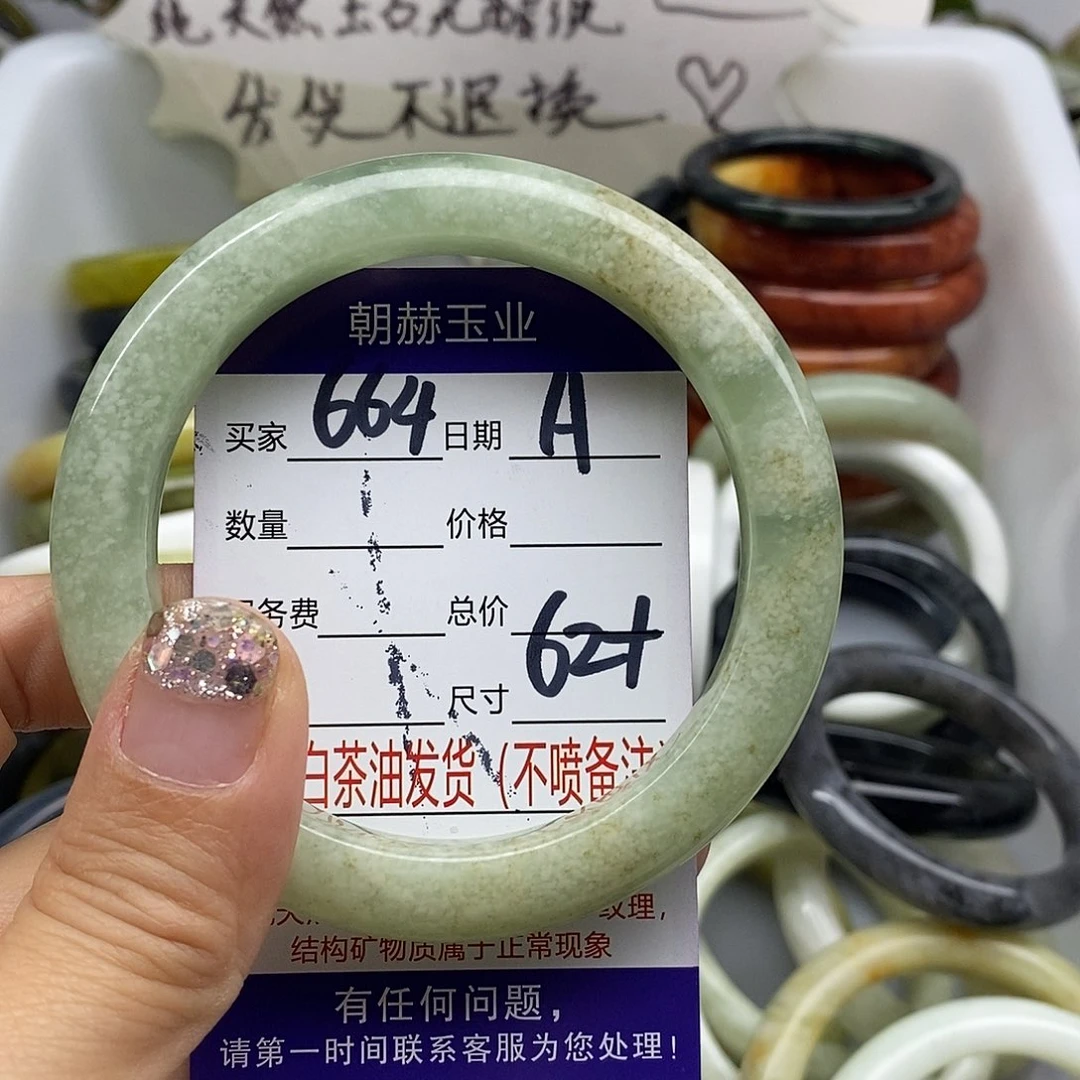 纯天然玉石无
不退换
朝赫玉业
买家 664 日期 A
数量 价格
务费 总价 621
尺寸
白茶油发货（不喷备注
纹理，
结构矿物质属于正常现象
有任何问题，
请第一时间联系客服为您处理！